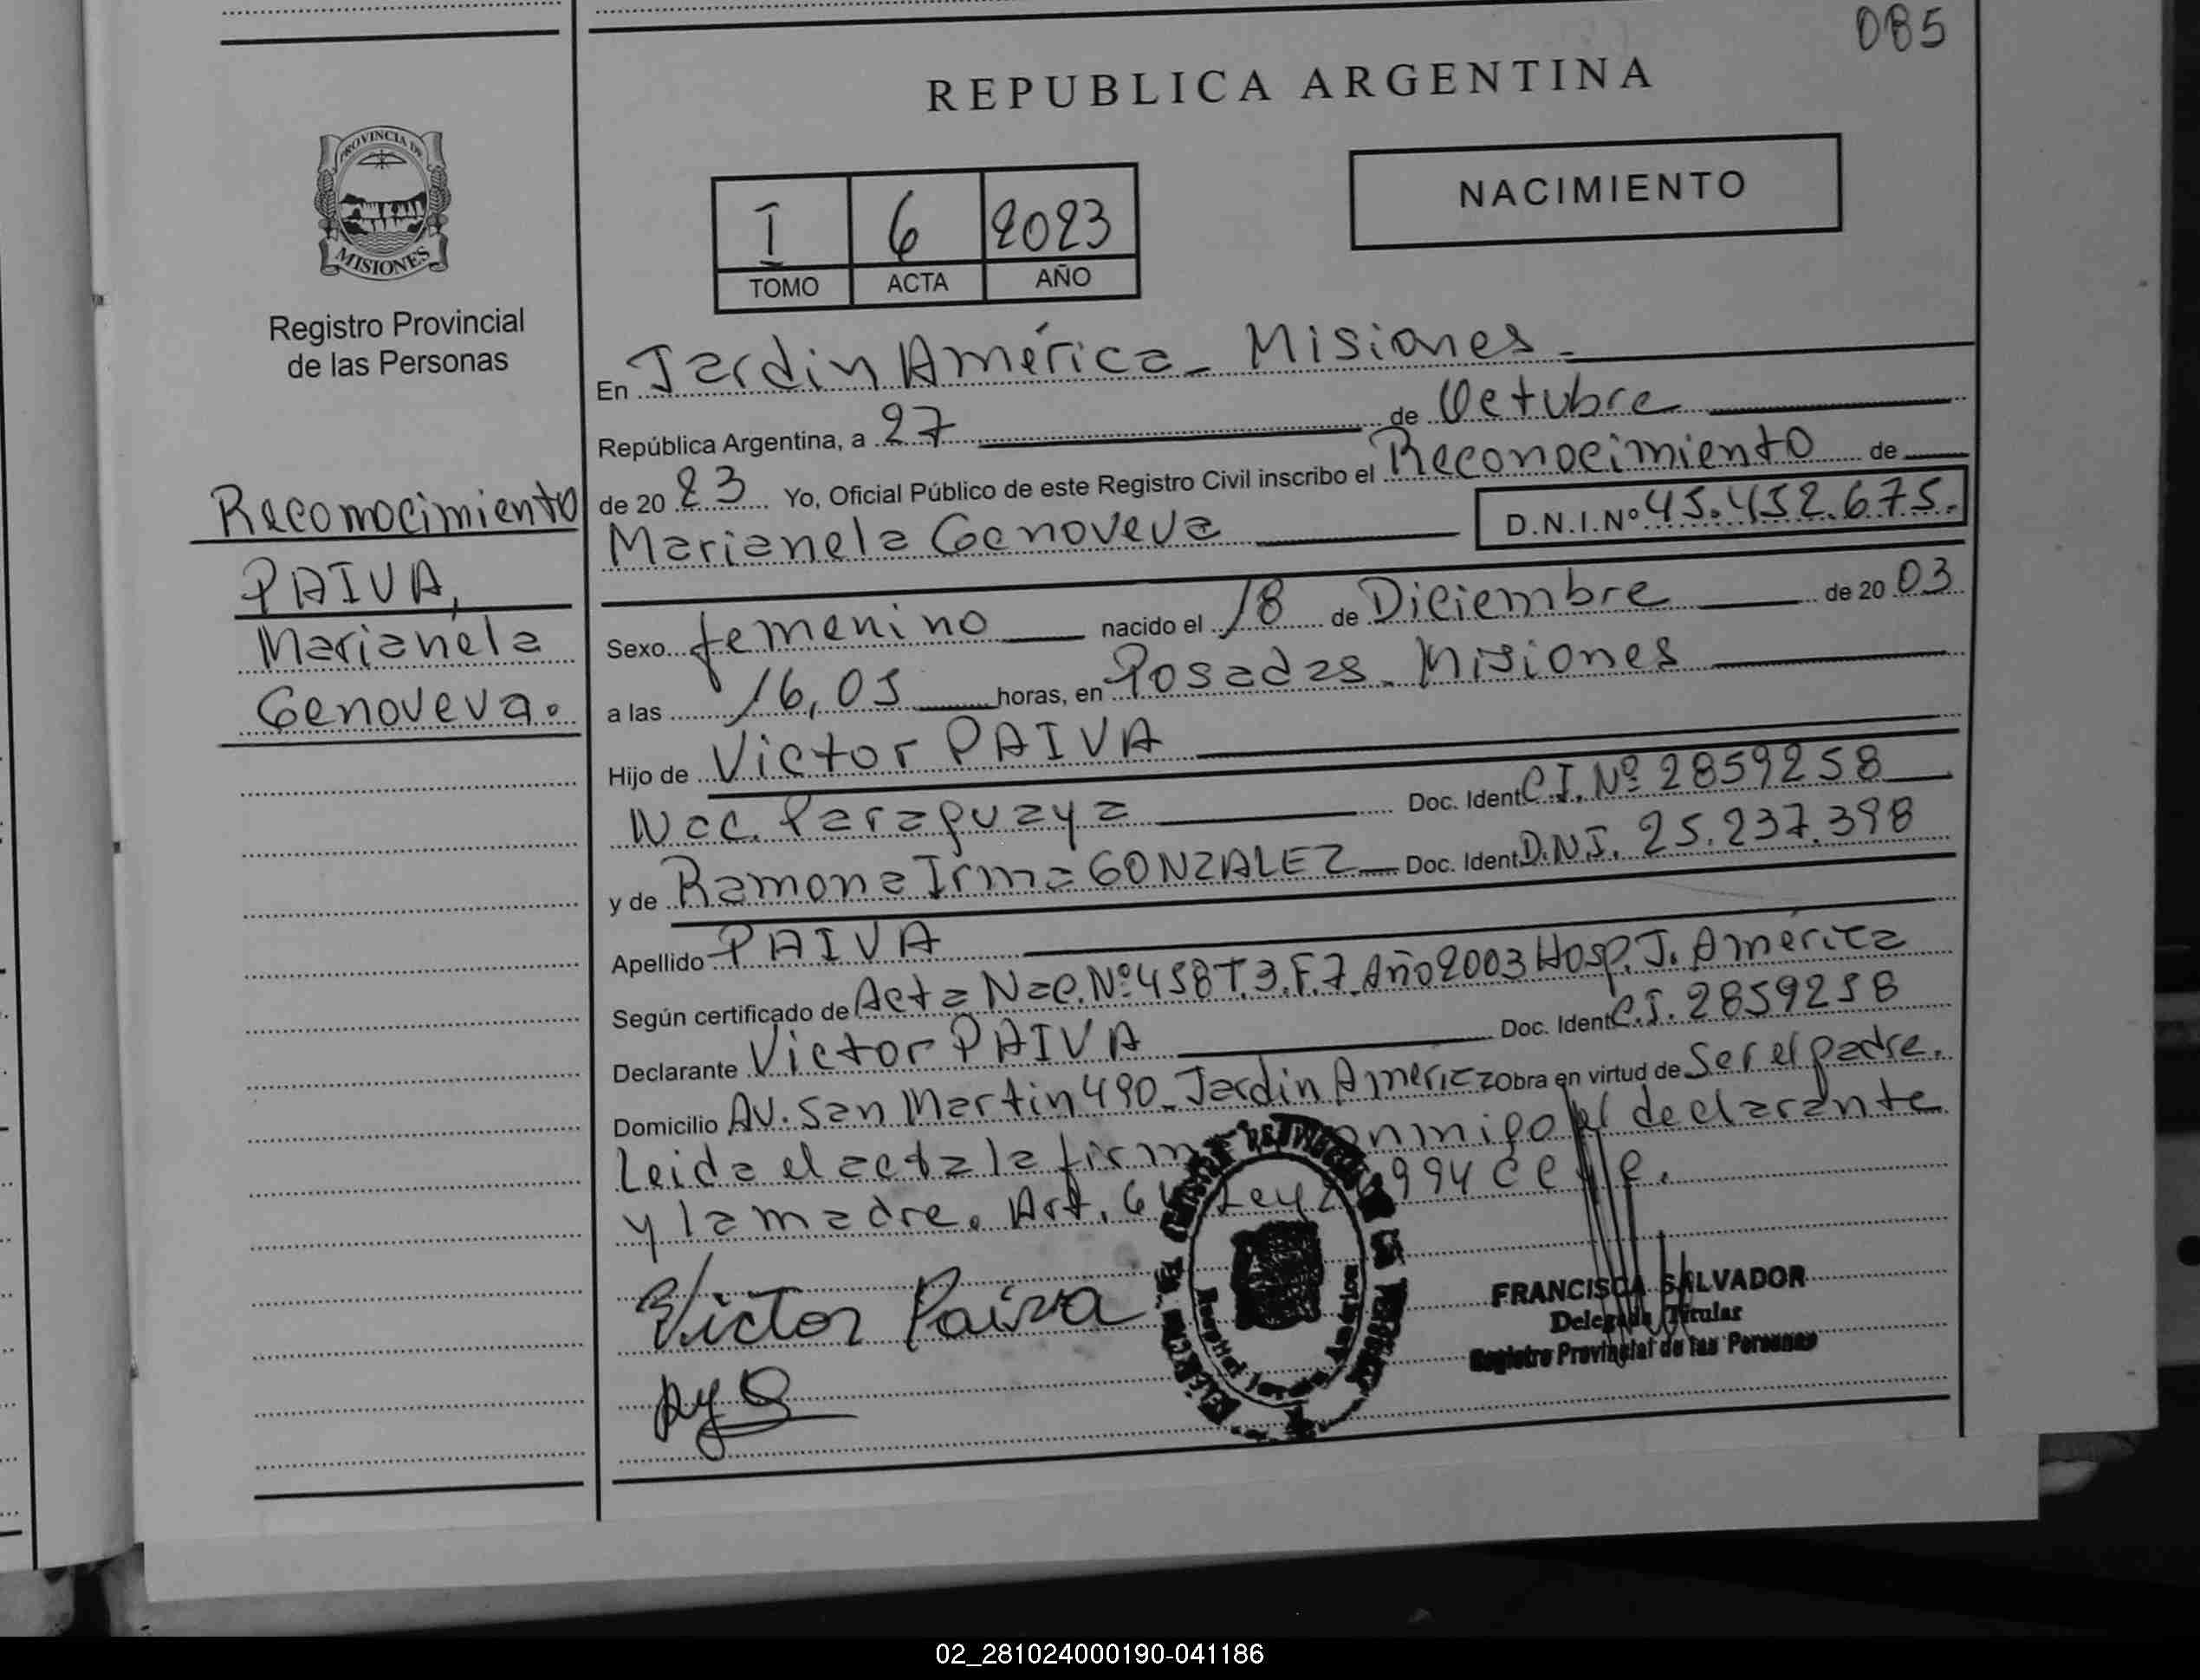 085
REPUBLICA ARGENTINA
PROVINCIA DE
MISIONES
I 6 2023
TOMO ACTA AÑO
NACIMIENTO
Registro Provincial
de las Personas
Reconocimiento
PAIVA,
Marianela
Genoveva.
En Jardin América - Misiones -
República Argentina, a 27 de Octubre
de 2023 Yo, Oficial Público de este Registro Civil inscribo el Reconocimiento de
Marianela Genoveva D.N.I.Nº 45.452.675.
Sexo femenino nacido el 18 de Diciembre de 2003
a las 16,05 horas, en Posadas - Misiones
Hijo de Victor PAIVA
Nac. Paraguaya Doc. Ident C.I. Nº 2859258
y de Ramona Irma GONZALEZ Doc. Ident D.N.I. 25.237.398
Apellido PAIVA
Según certificado de Acta Nac. Nº 458 T. 3. F. 7. Año 2003 Hosp. J. América
Declarante Victor PAIVA Doc. Ident C.I. 2859258
Domicilio Av. San Martin 490 - Jardin America Obra en virtud de Ser el padre.
Leida el acta la firm conmigo el declarante
y la madre. Art. 64 Ley 26994
Victor Paiva
FRANCISCA SALVADOR
Delegada Titular
Registro Provincial de las Personas
02_281024000190-041186